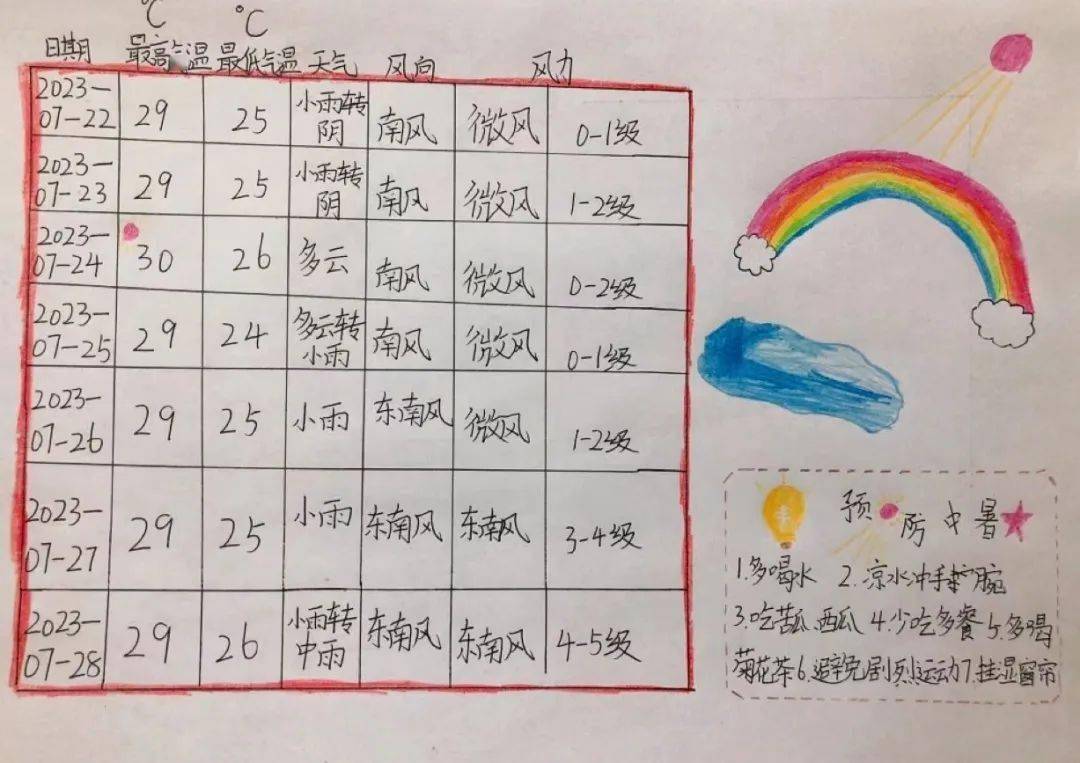 ℃ ℃
日期 最高气温 最低气温 天气 风向 风力
2023-07-22 29 25 小雨转阴 南风 微风 0-1级
2023-07-23 29 25 小雨转阴 南风 微风 1-2级
2023-07-24 30 26 多云 南风 微风 0-2级
2023-07-25 29 24 多云转小雨 南风 微风 0-1级
2023-07-26 29 25 小雨 东南风 微风 1-2级
2023-07-27 29 25 小雨 东南风 东南风 3-4级
2023-07-28 29 26 小雨转中雨 东南风 东南风 4-5级
预防中暑
1.多喝水 2.凉水冲手腕
3.吃苦瓜、西瓜 4.少吃多餐 5.多喝
菊花茶 6.避免剧烈运动 7.挂湿窗帘